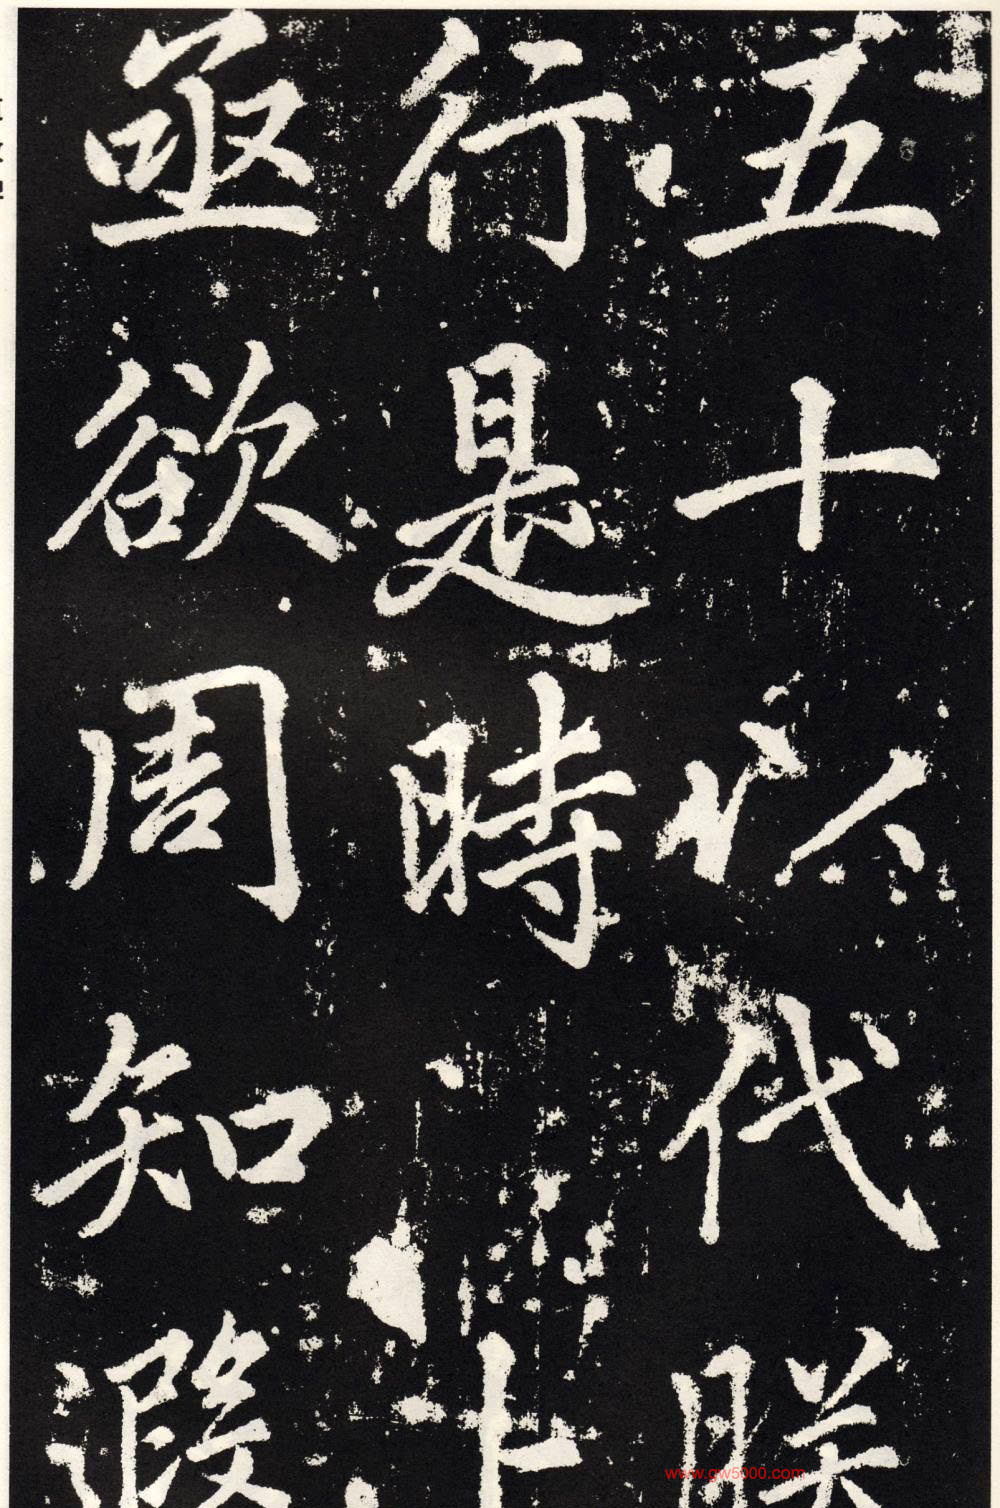 五十以代朕
行是時上
亟欲周知遐
www.gw5000.com